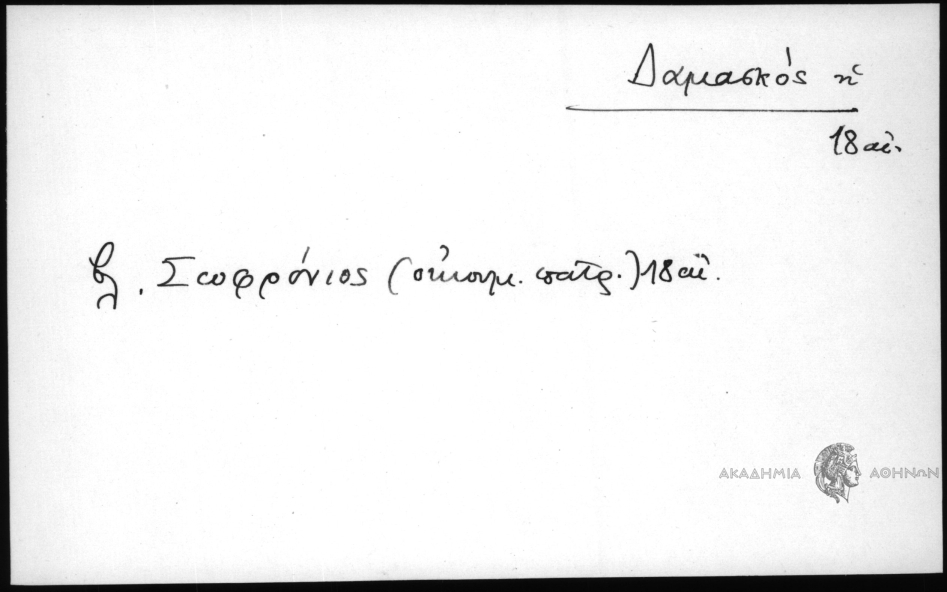 Δαμασκός ἡ
18 αἰ.
βλ. Σωφρόνιος (οἰκουμ. πατρ.) 18 αἰ.
ΑΚΑΔΗΜΙΑ ΑΘΗΝΩΝ